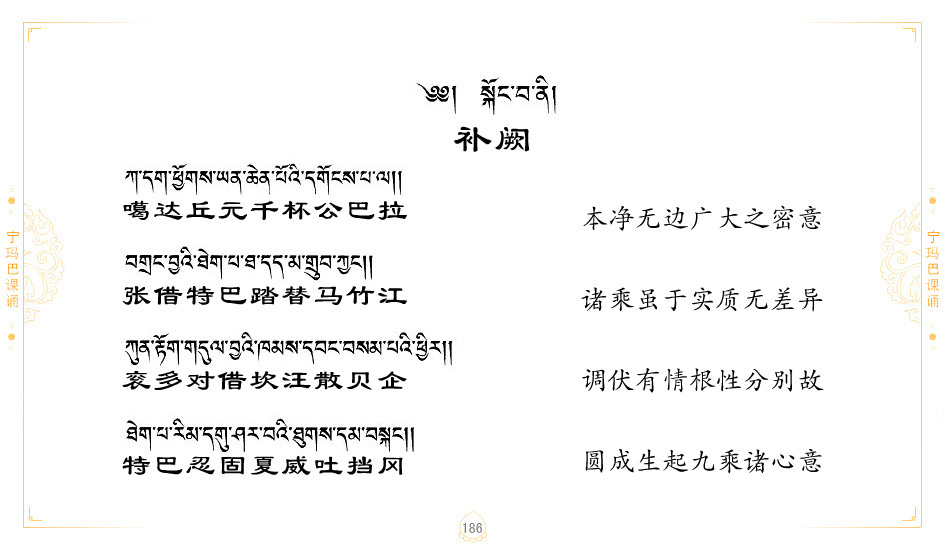 ༄༅། སྐོང་བ་ནི།
补阙
ཀ་དག་ཕྱོགས་ཡན་ཆེན་པོའི་དགོངས་པ་ལ།།
噶达丘元千杯公巴拉
本净无边广大之密意
བགྲང་བྱའི་ཐེག་པ་ཐ་དད་མ་གྲུབ་ཀྱང་།།
张借特巴踏替马竹江
诸乘虽于实质无差异
ཀུན་རྟོག་གདུལ་བྱའི་ཁམས་དབང་བསམ་པའི་ཕྱིར།།
衮多对借坎汪散贝企
调伏有情根性分别故
ཐེག་པ་རིམ་དགུ་ཤར་བའི་ཐུགས་དམ་བསྐང་།།
特巴忍固夏威吐挡冈
圆成生起九乘诸心意
宁玛巴课诵
宁玛巴课诵
186